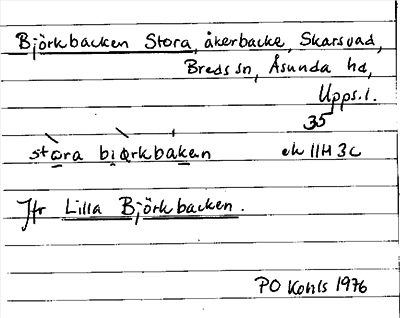 Björkbacken Stora, åkerbacke, Skarsvad,
Breds sn, Åsunda hd,
Upps. l.
35
stora biörkbaken ek 11H 3c
Jfr Lilla Björkbacken.
PO Kohls 1976